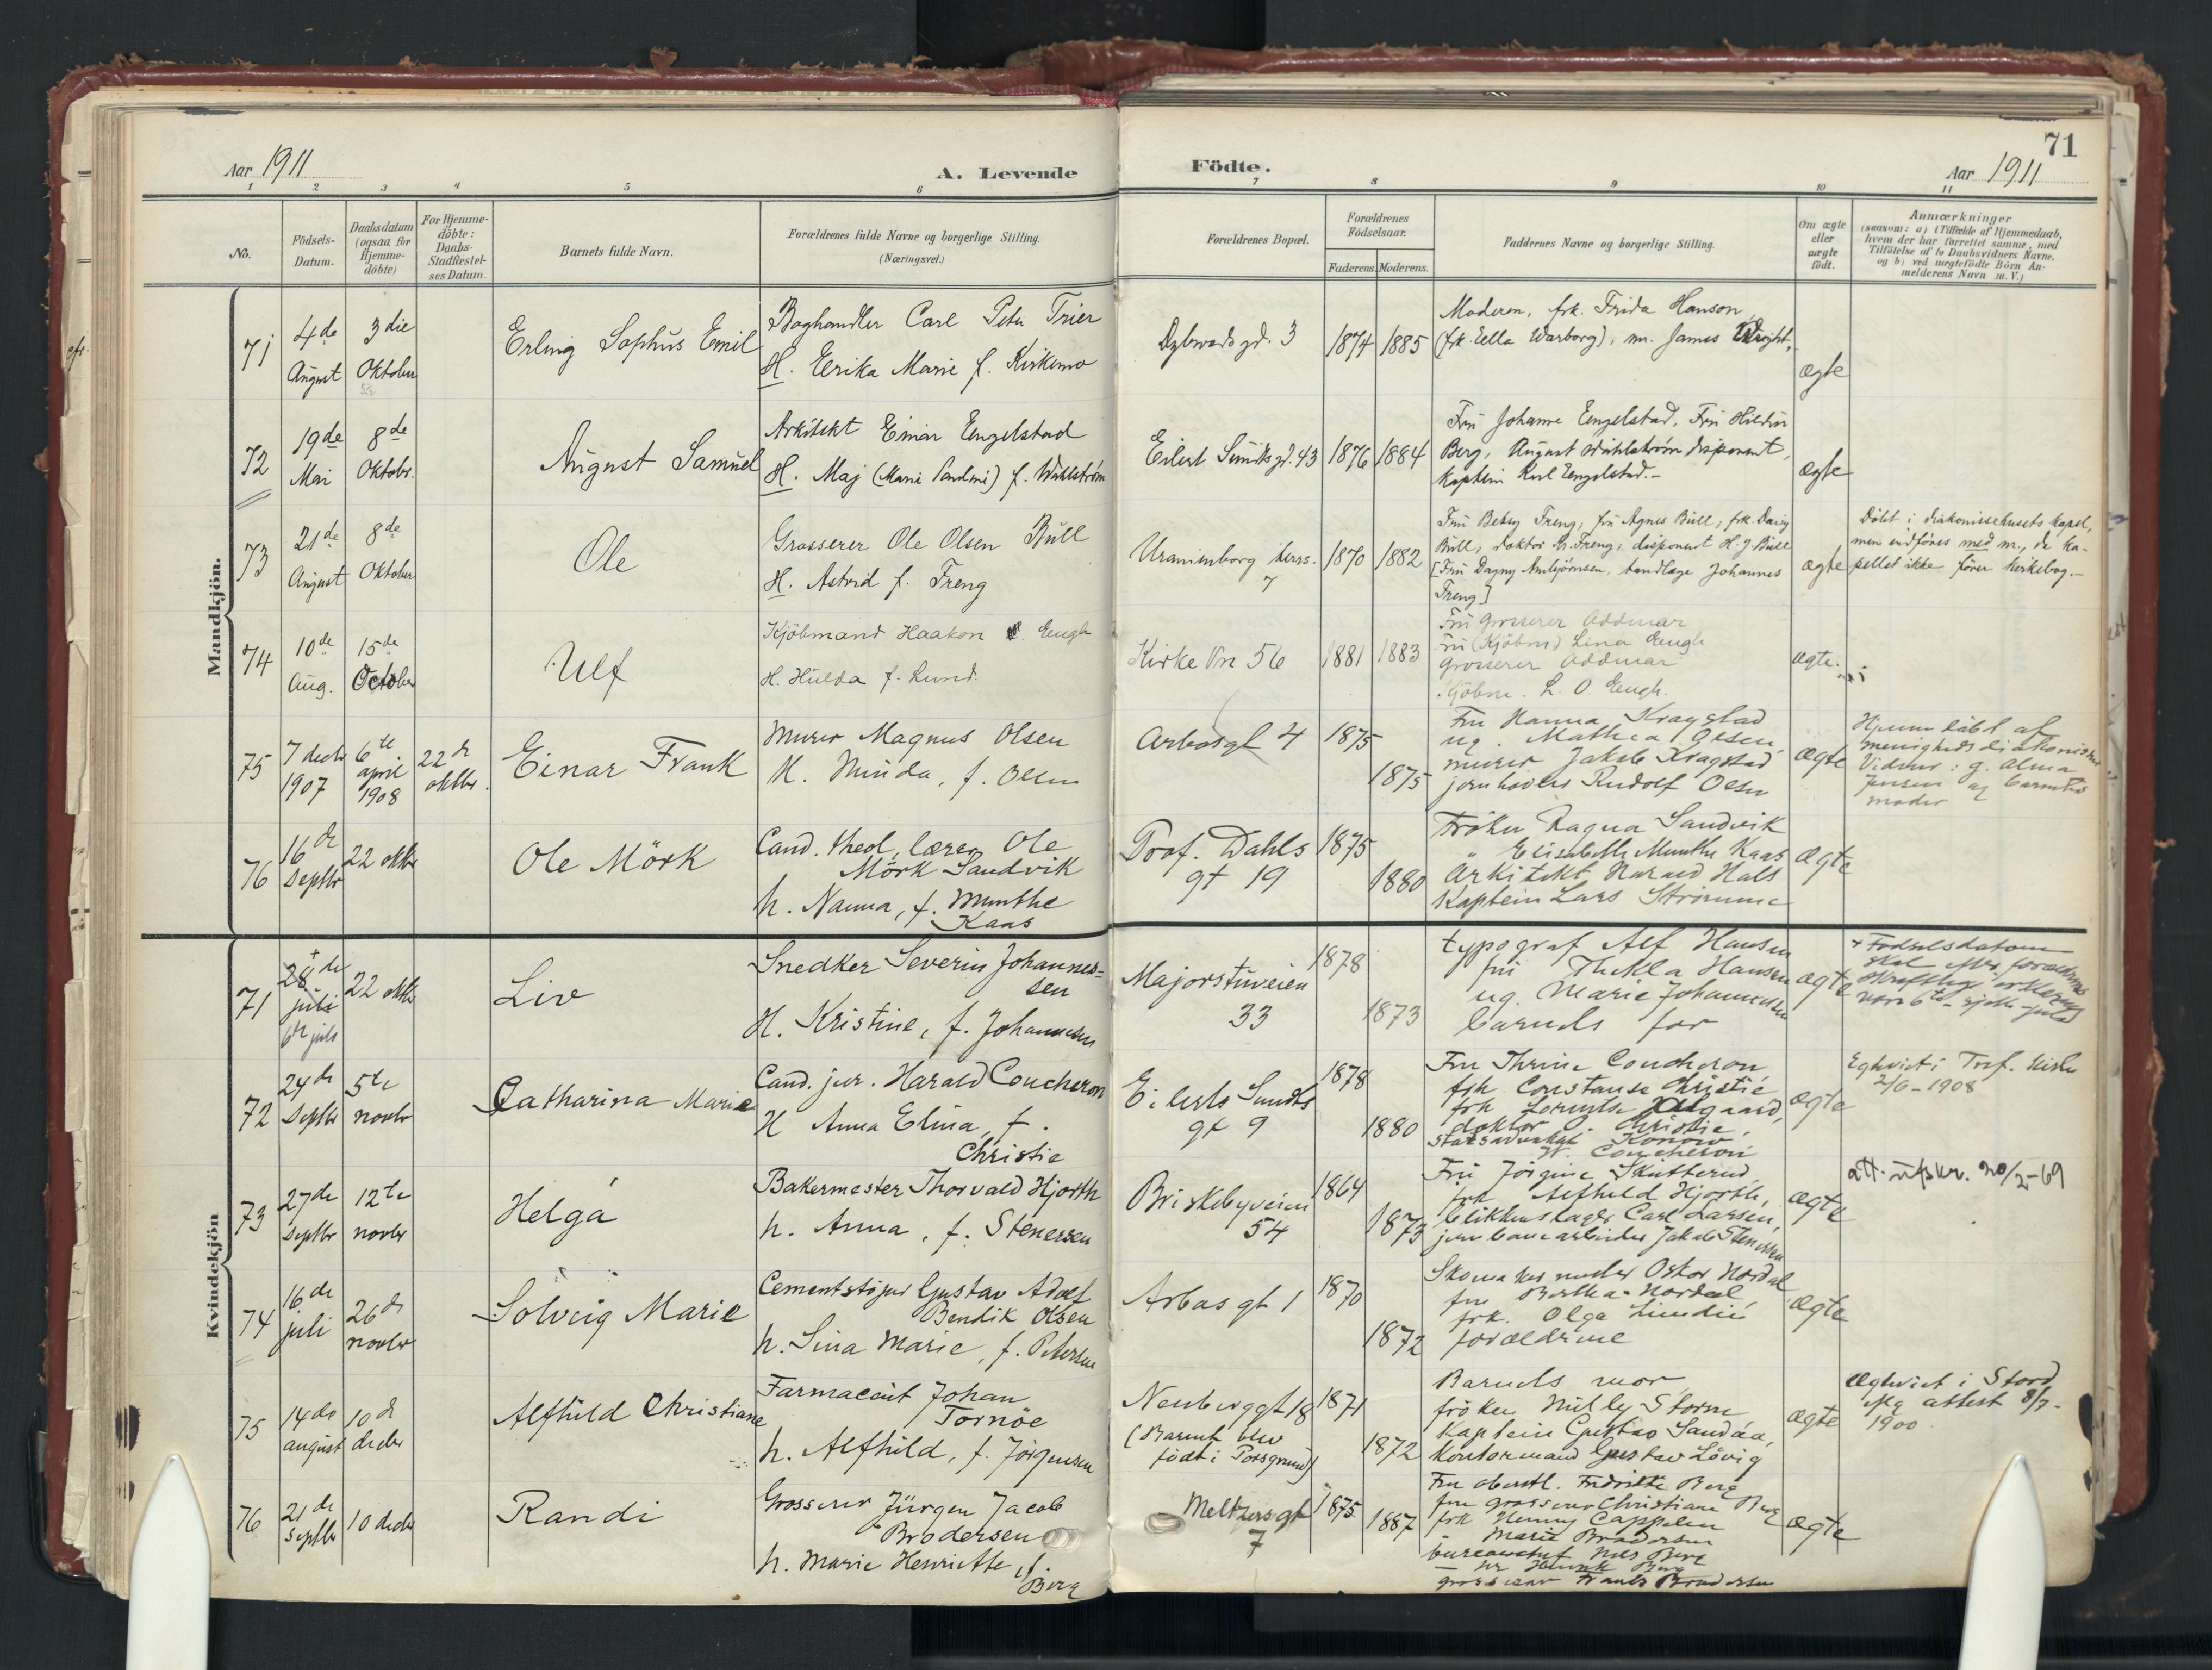 71
Aar 1911
A. Levende
Födte.
Aar 1911
1 2 3 4 5 6 7 8 9 10 11
No.
Födsels-
Datum.
Daabsdatum
(ogsaa for
Hjemme-
döbte)
For Hjemme-
döbte:
Daabs-
Stadfæstel-
ses Datum.
Barnets fulde Navn.
Forældrenes fulde Navne og borgerlige Stilling.
(Næringsvei.)
Forældrenes Bopæl.
Forældrenes
Födselsaar.
Faderens. Moderens.
Faddernes Navne og borgerlige Stilling.
Om ægte
eller
uægte
födt.
Anmærkninger
(saasom: a) i Tilfælde af Hjemmedaab,
hvem der har forrettet samme, med
Tilföielse af to Daabsvidners Navne,
og b) ved uægtefödte Börn An-
melderens Navn m. V.)
Mandkjön.
71
4de
August
3die
Oktober
Erling Sophus Emil
Boghandler Carl Peter Trier
H. Erika Marie f. Kirkemo
Dybwadsgd. 3
1874 1885
Moderen, frk. Frida Hanson,
(frk. Ella Warborg), mr. James Wright.
ægte
72
19de
Mai
8de
Oktobr.
August Samuel
Arkitekt Einar Engelstad
H. Maj (Marie) f. Wahlström
Eilert Sundtsgd. 43
1876 1884
Fru Johanne Engelstad, Fru
Berg, August Wahlström disponent,
Kaptein Karl Engelstad.-
ægte
73
21de
August
8de
Oktober
Ole
Grosserer Ole Olsen Bull
H. Astrid f. Freng
Uranienborg terrs.
7
1870 1882
Fru Betsy Freng, fru Agnes Bull, frk. Daisy
Bull, doktor Freng, disponent H. J. Bull
[Fru Dagny Ambjørnsen, tandlæge Johannes
Freng]
ægte
Döbt i diakonissehusets kapel,
men indföres med nr., da ka-
pellet ikke förer kirkebog.-
74
10de
Aug.
15de
October
Ulf
Kjöbmand Haakon Engh
H. Hulda f. Lund.
Kirkevn 56
1881 1883
Fru grosserer Oddmar
Fru (Kjöbm) Lina Engh
grosserer Oddmar
Kjöbm. L. O. Engh.
ægte.
75
7 decbr
1907
6te
april
1908
22de
oktbr.
Einar Frank
Murer Magnus Olsen
H. Minda, f. Olsen
Arbosgt 4
1875
1875
Fru Hanna Kragstad
ug. Mathea Olsen,
murer Jakob Kragstad
Rudolf Olsen
ægte
Hjemmedöbt af
menighedsdiakonisse
Vidner: g. Alma
Jensen og barnets
moder
76
16de
Septbr
22 oktbr
Ole Mörk
Cand. theol. lærer Ole
Mörk Sandvik
h. Nanna, f. Munthe
Kaas
Prof. Dahls
gt 19
1875
1880
Fröken Ragna Sandvik
" Elisabeth Munthe Kaas
Arkitekt Harald Hals
Kaptein Lars Strömme
ægte
Kvindekjön
71
28de
juli
6te juli
22 oktbr
Liv
Snedker Severin Johannes-
sen
H. Kristine, f. Johannesen
Majorstuveien
33
1878
1873
typograf Alf Hansen
fru Thekla Hansen
ug. Marie Johannessen
barnets far
ægte
+ Fødselsdatoen
skal efter forældrenes
skriftlige erklæring
være 6te - sjette - juli
72
24de
Septbr
5te
novbr
Catharina Marie
Cand. jur. Harald Coucheron
H Anna Elina, f.
Christie
Eilerts Sundts
gt 9
1878
1880
Fru Thrine Coucheron
frk Constanse Christie
frk
doktor O. Christie,
statsadvokat Konow
Coucheron
ægte
Egteviet i Tref. kirke
2/6-1908
73
27de
Septbr
12te
novbr
Helga
Bakermester Thorvald Hjorth
h. Anna, f. Stenersen
Briskebyveien
54
1864
1873
Fru Jörgine Skutterud,
frk Alfhild Hjorth,
blikkenslager Carl Larsen,
jernbanearbeider Jakob Stenersen
ægte
att. utskr. 20/2-69
74
16de
juli
26de
novbr
Solveig Marie
Cementstöper Gustav Adolf
Bendik Olsen
h. Lina Marie, f. Petersen
Arbos gt 1
1870
1872
Skomakermester Oskar Nordal
fru Bertha Nordal
frk. Olga
forældrene
ægte
75
14de
august
10de
decbr
Alfhild Christiane
Farmaceut Johan
Tornöe
h. Alfhild, f. Jörgensen
Neuberggt 18
(Barnet blev
födt i Porsgrund)
1871
1872
Barnets mor
fröken Milly Storm
Kaptein Gustav Sandaa,
Kontormand Gustav Lövig
ægte
Ægteviet i Stord
ifig attest 8/7-
1900
76
21de
septbr
10 decbr
Randi
Grosserer Jürgen Jacob
Brodersen
h. Marie Henriette, f.
Berg
Meltzersgt
7
1875
1887
Fru oberstl. Fredrikke Berg
fru grosserer Christiane Berg
frk Henny Cappelen
" Marie Brodersen
bureauchef Nils Berg
hr Henrik Berg
grosserer Frants Brodersen
ægte